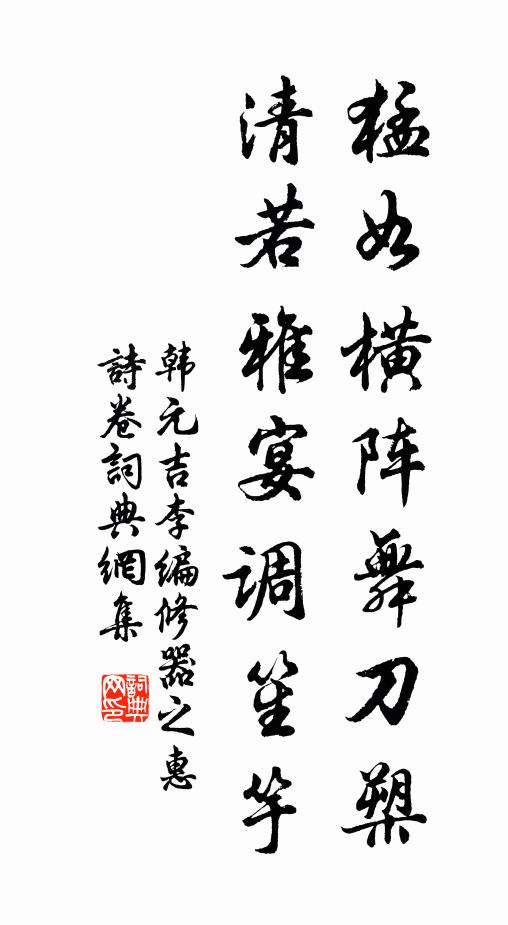 猛如横阵舞刀槊
清若雅宴调笙竽
韩元吉李编修器之惠
詩卷詞典網集
詞典网印